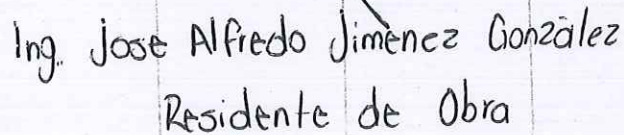 Ing. Jose Alfredo Jiménez González
Residente de Obra